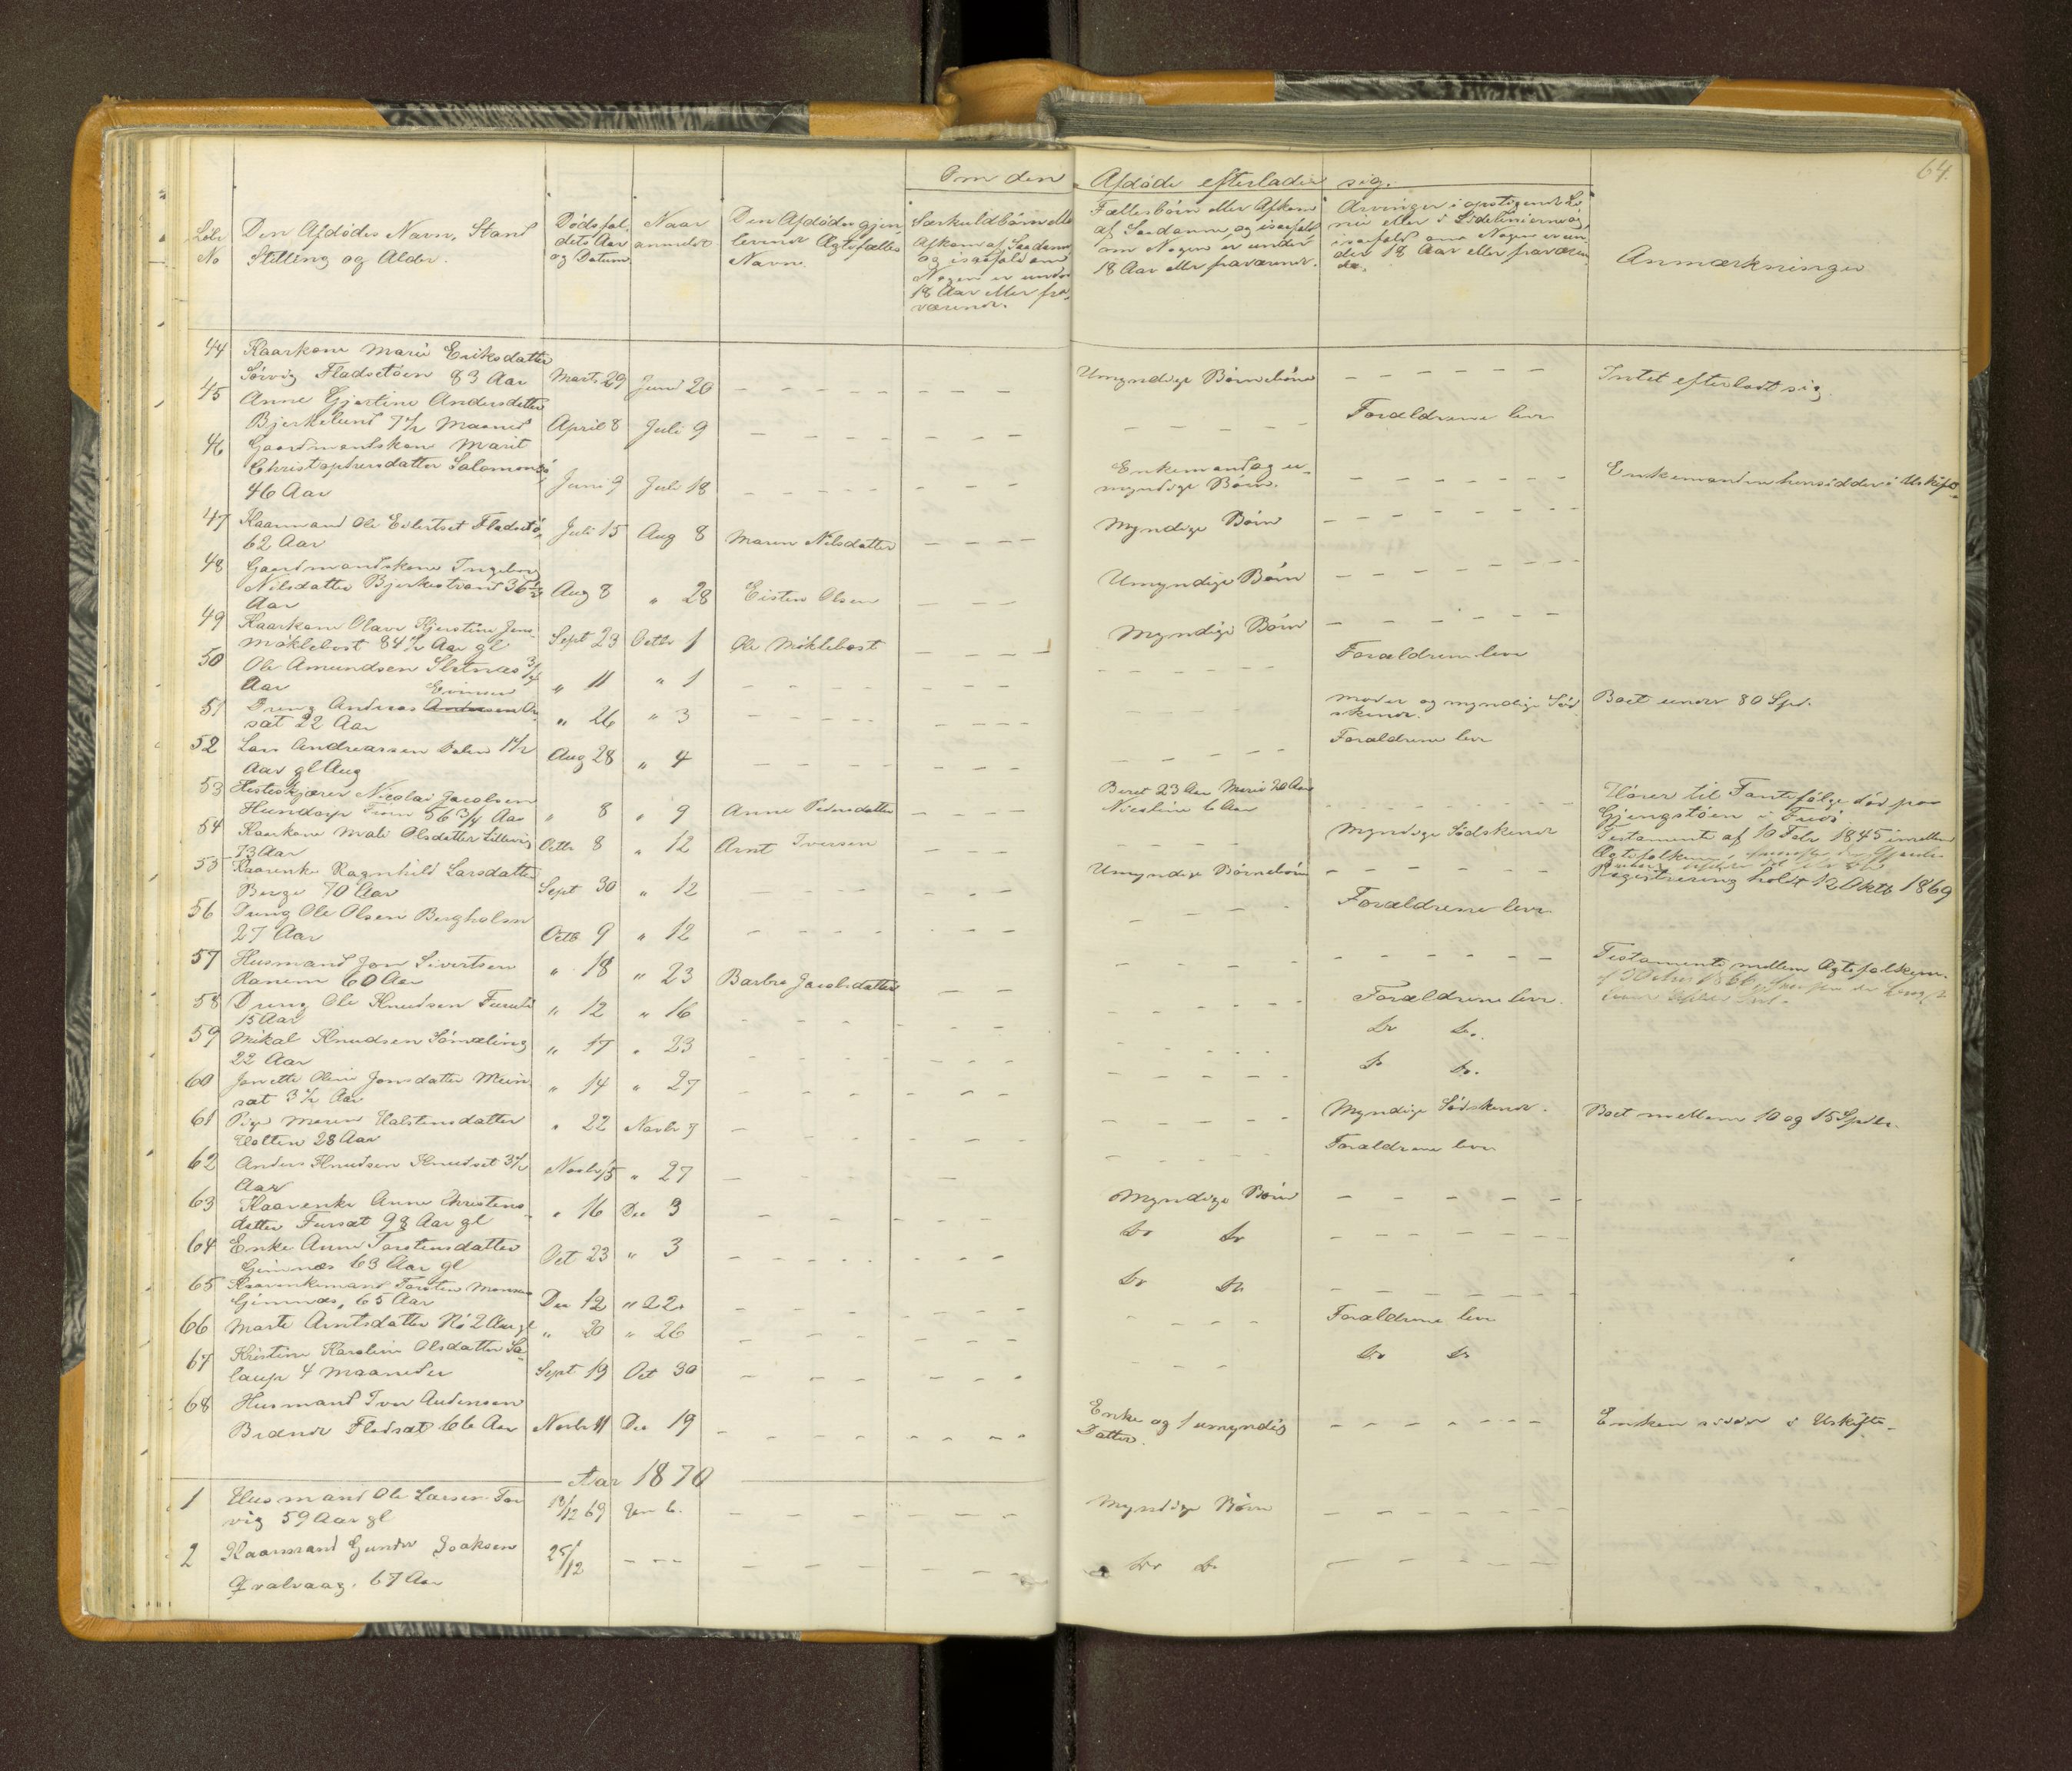 64.
Om den Afdøde efterlader sig.
Løbe No
Den Afdødes Navn, Stand
Stilling og Alder.
Dødsfaldets Aar og Datum
Naar anmeldt
Den Afdødes gjenlevende Ægtefælles Navn
Særkuldbørn eller Afkom af Saadanne og isaafald om Nogen er under 18 Aar eller fraværende.
Fællesbørn eller Afkom af Saadanne og isaafald om Nogen er under 18 Aar eller fraværende.
Arvinger i opstigende Linie eller i Sidelinierne og isaafald om Nogen er under 18 Aar eller fraværende.
Anmærkninger
44 Kaarkone Marie Eriksdatter
Sørvig Fladsetøen 83 Aar Marts 29 Juni 20 Umyndige Børnebørn Intet efterladt sig
45 Anne Gjertine Andersdatter
Bjerkelund 7 1/2 Maaned April 8 Juli 9 Forældrene lever
46 Gaardmandskone Marit
Christophersdatter
46 Aar Juni 9 Juli 18 Enkemand og umyndige Børn. Enkemanden hensidder i Uskifte
47 Kaarmand Ole Eilertset Fladsetø
62 Aar Juli 15 Aug 8 Maren Nilsdatter Myndige Børn
48 Gaardmandskone Ingeborg
Nilsdatter Bjerkestrand 36 1/2
Aar Aug 8 " 28 Eisten Olsen Umyndige Børn
49 Kaarkone Olave Kjerstine Jens
Møklebost 84 1/2 Aar gl Sept 23 Octbr 1 Ole Møklebost Myndige Børn
50 Ole Amundsen Sletnæs 3/4
Aar " 11 " 1 Forældrene lever
51 Dreng Andreas Andersen
sæt 22 Aar " 26 " 3 Moder og myndige Sødskende. Boet under 80 Spd.
52 Lars Andreassen Dalen 1 1/2
Aar gl Aug Aug 28 " 4 Forældrene lever
53 Hesteskjærer Nicolai Jacobsen
Hundorp 56 3/4 Aar " 8 " 9 Anne Pedersdatter Beret 23 Aar Marie 20 Aar
Nicoline 6 Aar Hører til Tantefølge død paa
Gjengstøen i
54 Kaarkone Mali Olsdatter Lillevig
73 Aar Octbr 8 " 12 Arnt Iversen Myndige Sødskende Testamente af 10 Febr 1845 imellem
Ægtefolkene,
55 Kaarenke Ragnhild Larsdatter
Berge 70 Aar Sept 30 " 12 Umyndige Børnebørn Registrering holdt 12 Oktb 1869
56 Dreng Ole Olsen Bergholm
27 Aar Octb 9 " 12 Forældrene lever
57 Husmand Jon Sivertsen
Ranem 60 Aar " 18 " 23 Barbro Jacobsdatter Testamente mellem Ægtefolkene
58 Dreng Ole Knudsen
15 Aar " 12 " 16 Forældrene lever.
59 Mikal Knudsen Sømæling
22 Aar " 17 " 23 Do Do.
60 Janette Oline Jonsdatter Mein
sæt 3 1/2 Aar " 14 " 27 Do Do.
61 Pige Maren Halstensdatter
Holten 28 Aar " 22 Novbr 9 Myndige Sødskende. Boet mellem 10 og 15 Spdlr.
62 Anders Knudsen Knudset 3 1/2
Aar Novbr 15 " 27 Forældrene lever
63 Kaarenke Anne Christens
datter Fursæt 98 Aar gl " 16 Dec 3 Myndige Børn
64 Enke Anne Torstensdatter
Gimnæs 63 Aar gl Oct 23 " 3 Do Do
65 Kaarenkemand Torsten Monsen
Gimnæs, 65 Aar Dec 12 " 22. Do Do
66 Marte Arntsdatter Nø 2 Aar gl " 20 " 26 Forældrene lever
67 Kristine Karoline Olsdatter
4 Maaneder Sept 19 Oct 30 Do Do
68 Husmand Iver Andersen
Brande Fledsæt 66 Aar Novbr 11 Dec 19 Enke og 1 umyndig Datter. Enken sidder i Uskifte.
Aar 1870
1 Husmand Ole Larsen Tor
vig 59 Aar gl 19/12 69 Jan 6. Myndige Børn
2 Kaarmand Gunder Isaksen
Qvalvaag. 67 Aar 25/12 Do Do